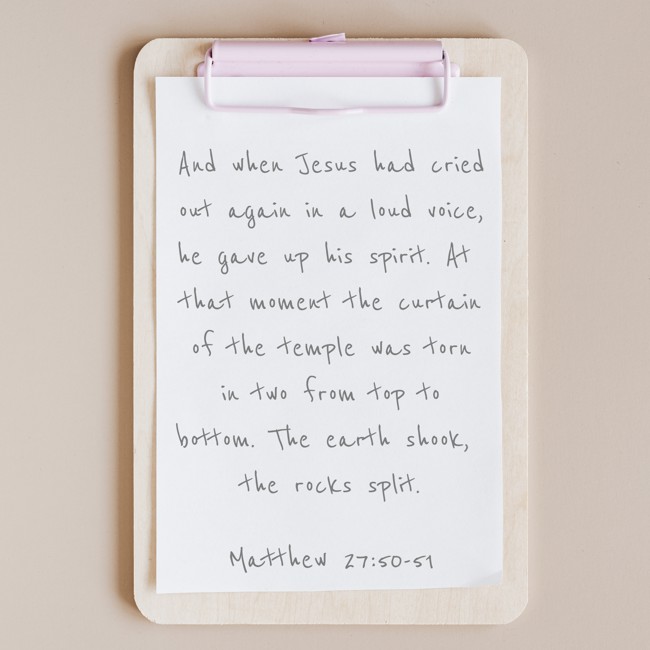 And when Jesus had cried
out again in a loud voice,
he gave up his spirit. At
that moment the curtain
of the temple was torn
in two from top to
bottom. The earth shook,
the rocks split.
Matthew 27:50-51